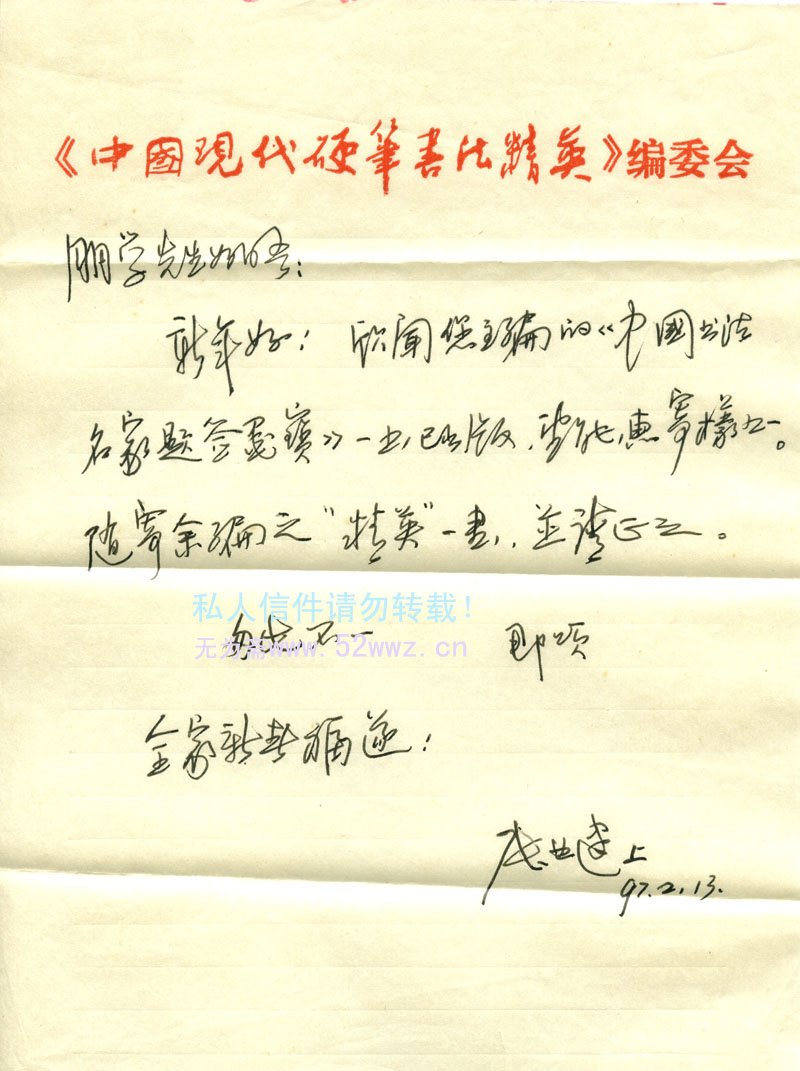 《中國現代硬筆書法精英》编委会
朋学先生如晤：
新年好！欣闻您主编的《中国书法
名家题签墨寶》一书已出版，望能惠寄樣书一。
随寄余编之“精英”一書，並請正之。
私人信件请勿转载！
匆匆不一 即颂
无为斋www.52wwz.cn
全家新春福邃！
上
97.2.13.